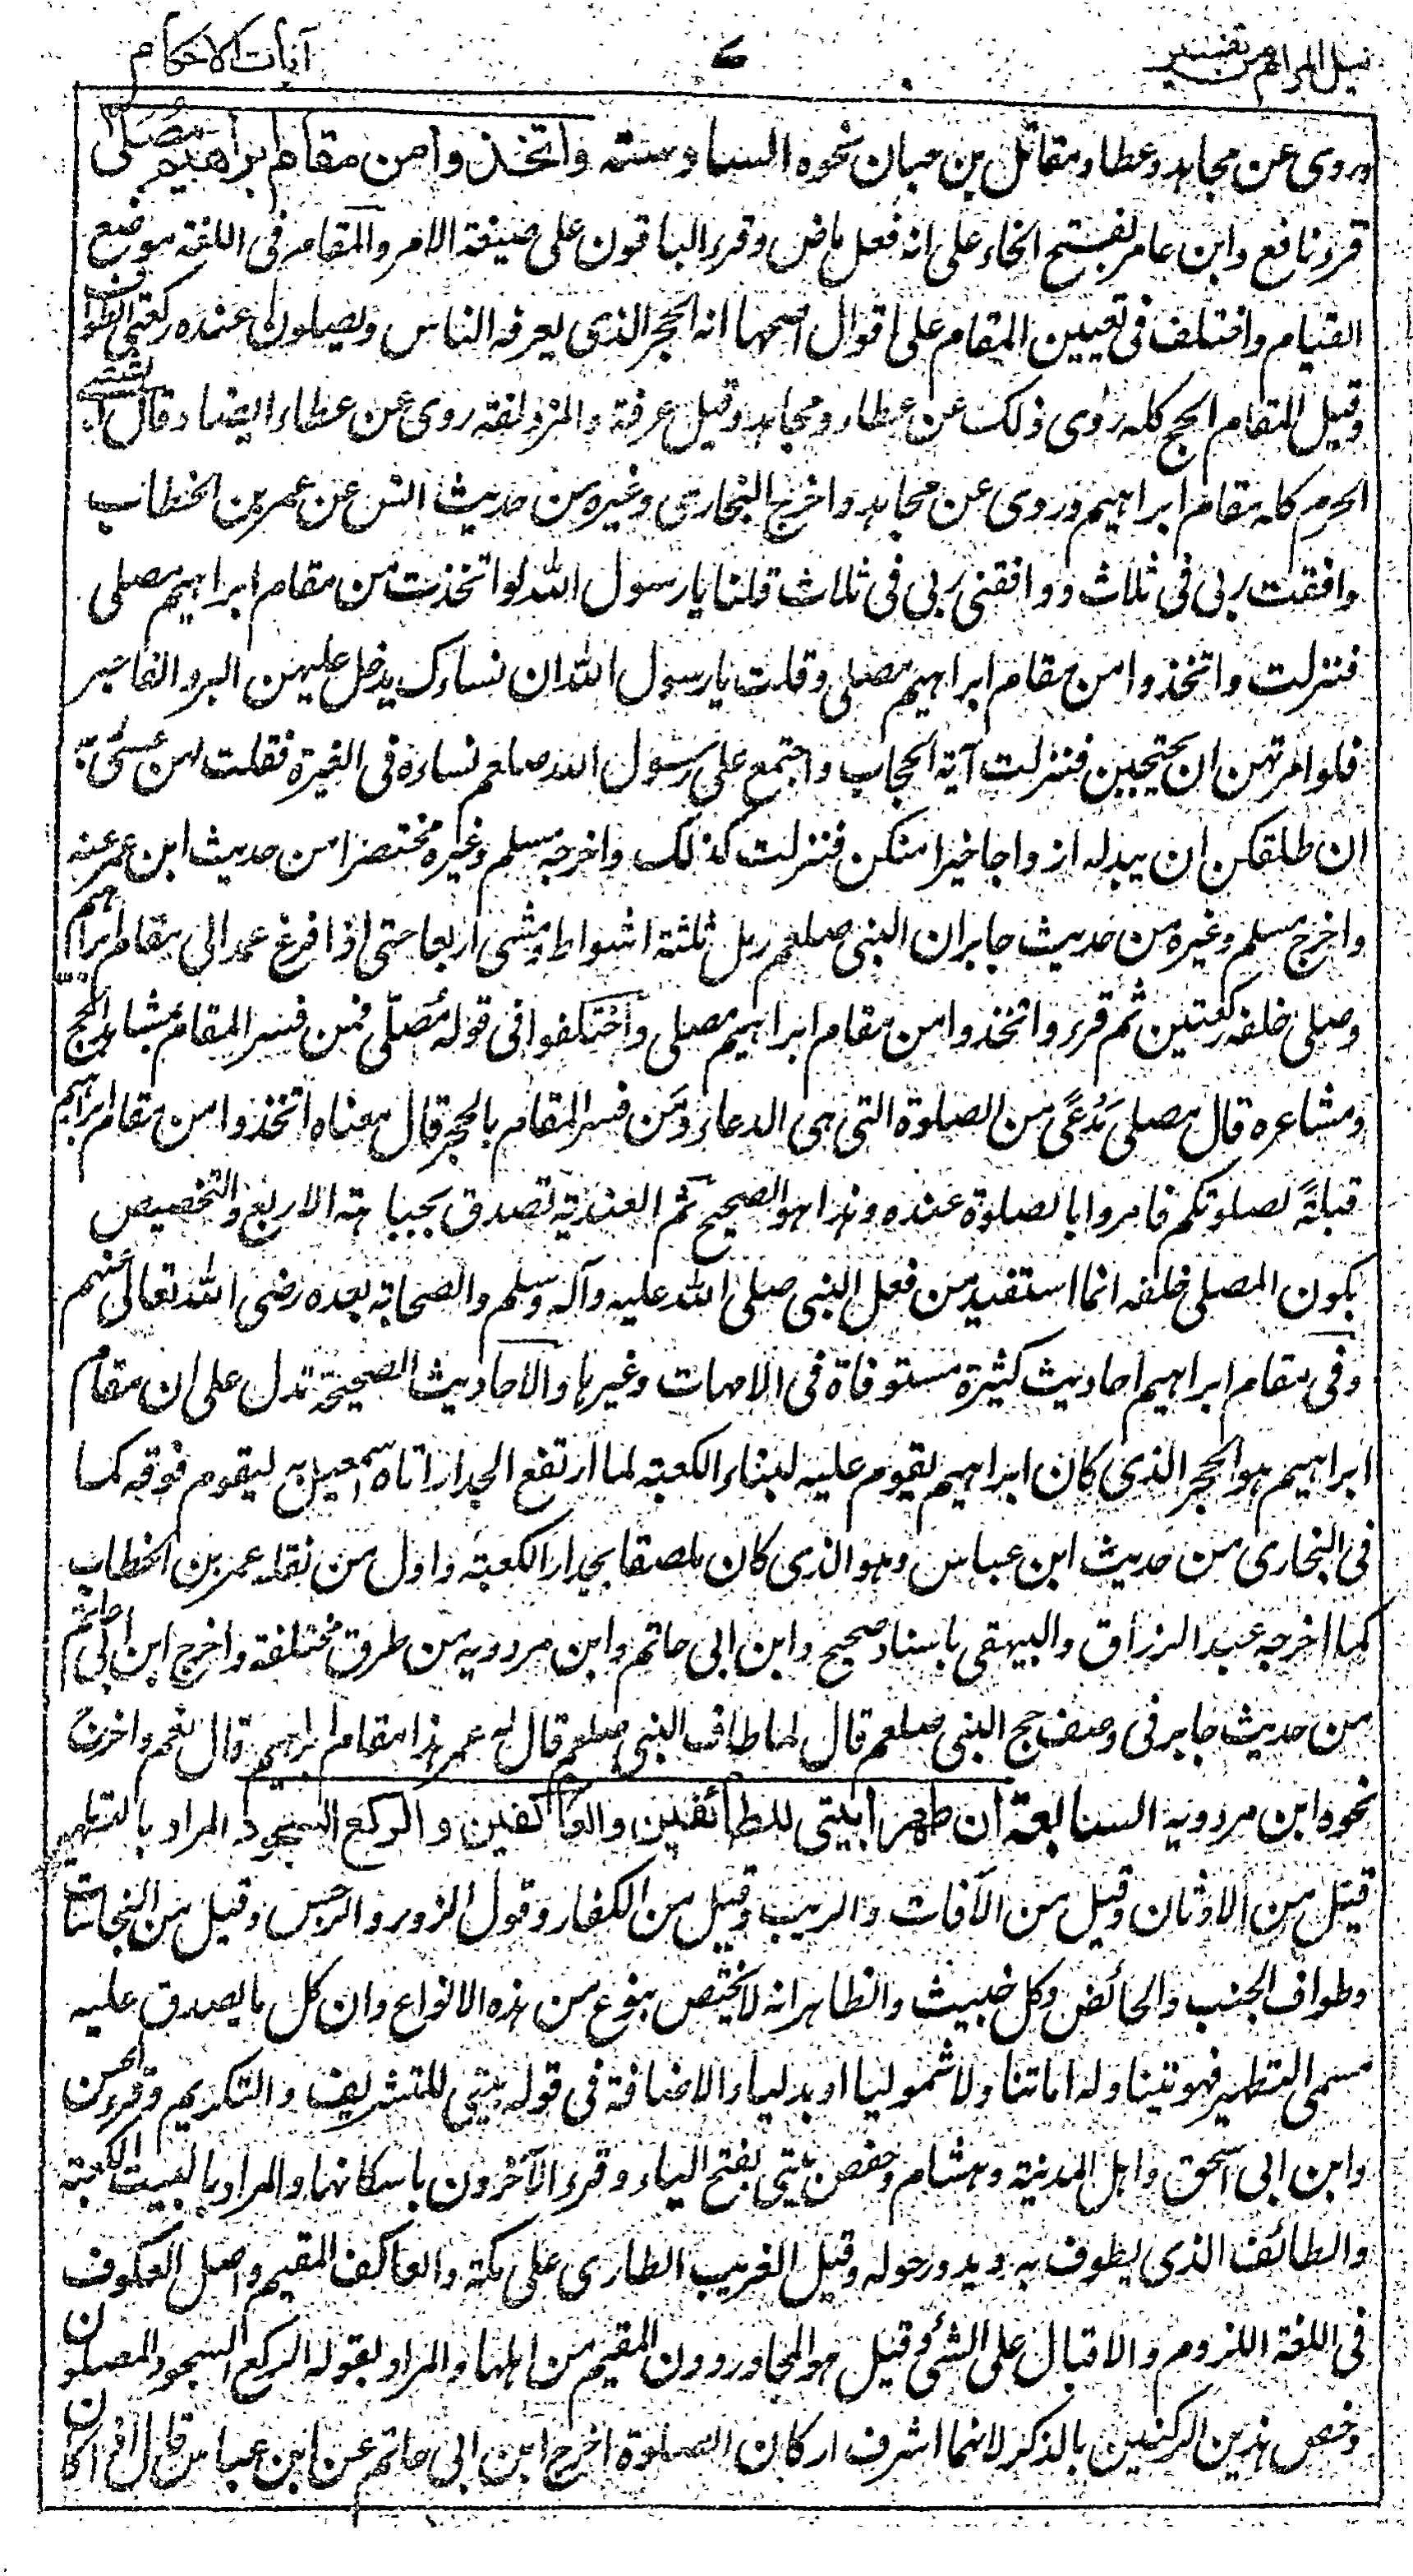 نيل المرام من تفسير ٦ آيات الاحكام
وروى عن مجاهد وعطاء ومقاتل بن حبان نحوه السادسة واتخذوا من مقام ابراهيم مصلى
قرء نافع وابن عامر بفتح الخاء على انه فعل ماض وقرء الباقون على صيغة الامر والمقام فى اللغة موضع
القيام واختلف فى تعيين المقام على اقوال اصحها انه الحجر الذى يعرفه الناس ويصلون عنده ركعتى الطواف
وقيل المقام الحج كله روى ذلك عن عطاء ومجاهد وقيل عرفة والمزدلفة روى عن عطاء ايضا وقال الشعبى
الحرم كله مقام ابراهيم وروى عن مجاهد واخرج البخارى وغيره من حديث انس عن عمر بن الخطاب
وافقت ربى فى ثلاث ووافقنى ربى فى ثلاث قلنا يا رسول الله لو اتخذت من مقام ابراهيم مصلى
فنزلت واتخذوا من مقام ابراهيم مصلى وقلت يا رسول الله ان نساءك يدخل عليهن البر والفاجر
فلو امرتهن ان يحتجبن فنزلت آية الحجاب واجتمع على رسول الله صلعم نساءه فى الغيرة فقلت لهن عسى ربه
ان طلقكن ان يبدله ازواجا خيرا منكن فنزلت كذلك واخرجه مسلم وغيره مختصرا من حديث ابن عمر عنه
واخرج مسلم وغيره من حديث جابر ان النبى صلعم رمل ثلثة اشواط ومشى اربعا حتى اذا فرغ عمد الى مقام ابراهيم
وصلى خلفه ركعتين ثم قرء واتخذوا من مقام ابراهيم مصلى واختلفوا فى قوله مُصلّى فمن فسر المقام بمشاهد الحج
ومشاعره قال مصلى مَدْعًى من الصلوة التى هى الدعاء ومن فسر المقام بالحجر قال معناه اتخذوا من مقام ابراهيم
قبلةً لصلوتكم فامروا بالصلوة عنده وهذا هو الصحيح ثم العندية تصدق بجهاته الاربع والتخصيص
بكون المصلى خلفه انما استفيد من فعل النبى صلى الله عليه وآله وسلم والصحابة بعده رضى الله تعالى عنهم
وفى مقام ابراهيم احاديث كثيرة مستوفاة فى الامهات وغيرها والاحاديث الصحيحة تدل على ان مقام
ابراهيم هو الحجر الذى كان ابراهيم يقوم عليه لبناء الكعبة لما ارتفع الجدار اتاه اسمعيل به ليقوم فوقه كما
فى البخارى من حديث ابن عباس وهو الذى كان ملصقا بجدار الكعبة واول من نقله عمر بن الخطاب
كما اخرجه عبد الرزاق والبيهقى باسناد صحيح وابن ابى حاتم وابن مردويه من طرق مختلفة واخرج ابن ابى حاتم
من حديث جابر فى وصف حج النبى صلعم قال لما طاف النبى صلعم قال له عمر هذا مقام ابراهيم قال نعم واخرج
نحوه ابن مردويه السابعة ان طهرا بيتى للطائفين والعاكفين والركع السجود المراد بالتطهير
قيل من الاوثان وقيل من الآفات والريب وقيل من الكفار وقول الزور والرجس وقيل من النجاسات
وطواف الجنب والحائض وكل خبيث والظاهر انه لا يختص بنوع من هذه الانواع وان كل ما يصدق عليه
مسمى التطهير فهو يتناوله اما تناولا شموليا او بدليا والاضافة فى قوله بيتى للتشريف والتكريم وقرء الحسن
وابن ابى اسحق واهل المدينة وهشام وحفص بيتى بفتح الياء وقرء الآخرون باسكانها والمراد بالبيت الكعبة
والطائف الذى يطوف به ويدور حوله وقيل الغريب الطارى على مكة والعاكف المقيم واصل العكوف
فى اللغة اللزوم والاقبال على الشئ وقيل هو المجاور دون المقيم من اهلها والمراد بقوله الركع السجود المصلون
وخص هذين الركنين بالذكر لانهما اشرف اركان الصلوة اخرج ابن ابى حاتم عن ابن عباس قال اذا كان